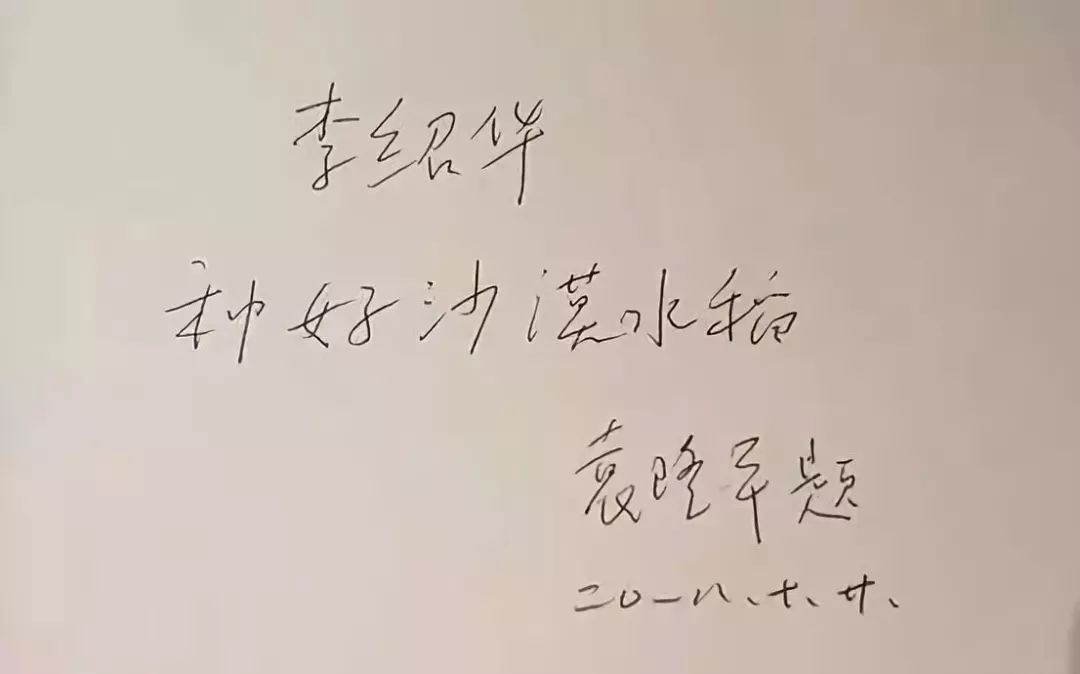 李绍华
种好沙漠水稻
袁隆平题
二〇一八、十、廿、